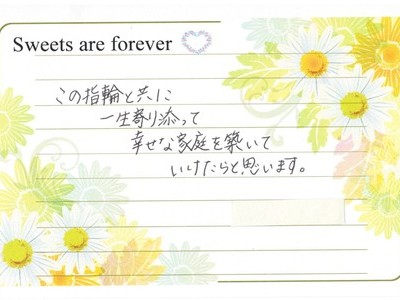 Sweets are forever
この指輪と共に
一生寄り添って
幸せな家庭を築いて
いけたらと思います。